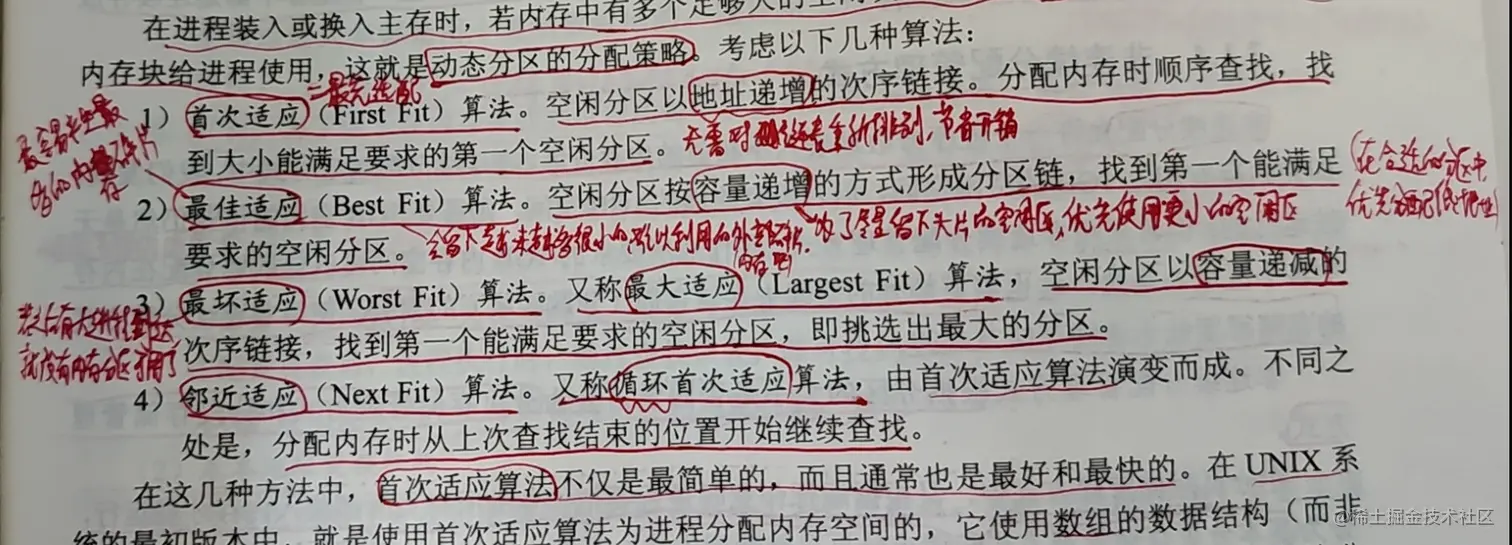 在进程装入或换入主存时，若内存中有多个足够大的空闲
内存块给进程使用，这就是动态分区的分配策略。考虑以下几种算法：
1）首次适应（First Fit）算法。空闲分区以地址递增的次序链接。分配内存时顺序查找，找
到大小能满足要求的第一个空闲分区。
重新排列，节省开销
最容易产生最
2）最佳适应（Best Fit）算法。空闲分区按容量递增的方式形成分区链，找到第一个能满足
要求的空闲分区。
为了尽量留下大片的空闲区，优先使用更小的空闲区
3）最坏适应（Worst Fit）算法。又称最大适应（Largest Fit）算法，空闲分区以容量递减的
次序链接，找到第一个能满足要求的空闲分区，即挑选出最大的分区。
就没有内存分区可用了
4）邻近适应（Next Fit）算法。又称循环首次适应算法，由首次适应算法演变而成。不同之
处是，分配内存时从上次查找结束的位置开始继续查找。
在这几种方法中，首次适应算法不仅是最简单的，而且通常也是最好和最快的。在 UNIX 系
统的最初版本中，就是使用首次适应算法为进程分配内存空间的，它使用数组的数据结构（而非
@稀土掘金技术社区